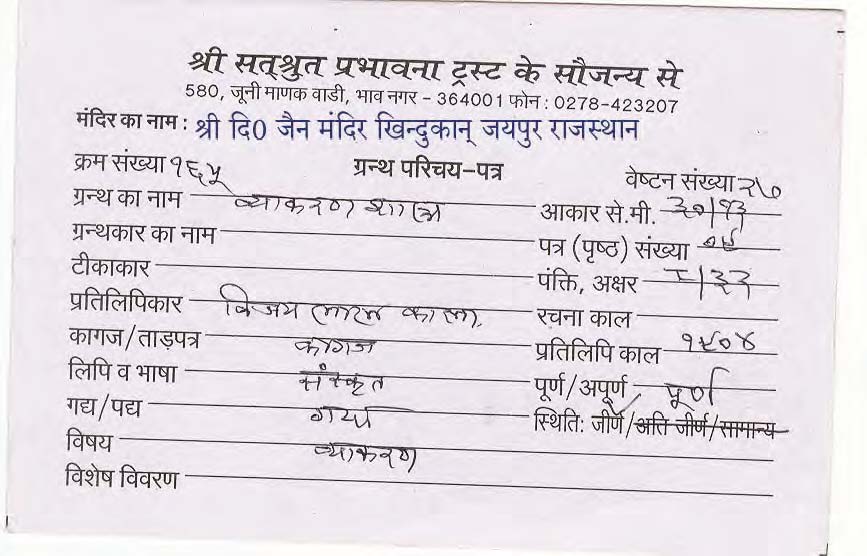 श्री सत्श्रुत प्रभावना ट्रस्ट के सौजन्य से
580, जूनी माणक वाडी, भाव नगर - 364001 फोन : 0278-423207
मंदिर का नाम : श्री दि0 जैन मंदिर खिन्दुकान् जयपुर राजस्थान
क्रम संख्या १६५ ग्रन्थ परिचय-पत्र वेष्टन संख्या
ग्रन्थ का नाम व्याकरण शास्त्र आकार से.मी. ३०/१३
ग्रन्थकार का नाम पत्र (पृष्ठ) संख्या
टीकाकार पंक्ति, अक्षर
प्रतिलिपिकार विजय लाल काला रचना काल
कागज/ताड़पत्र कागज प्रतिलिपि काल १९०४
लिपि व भाषा संस्कृत पूर्ण/अपूर्ण पूर्ण
गद्य/पद्य गद्य स्थिति: जीर्ण/अति जीर्ण/सामान्य
विषय व्याकरण
विशेष विवरण